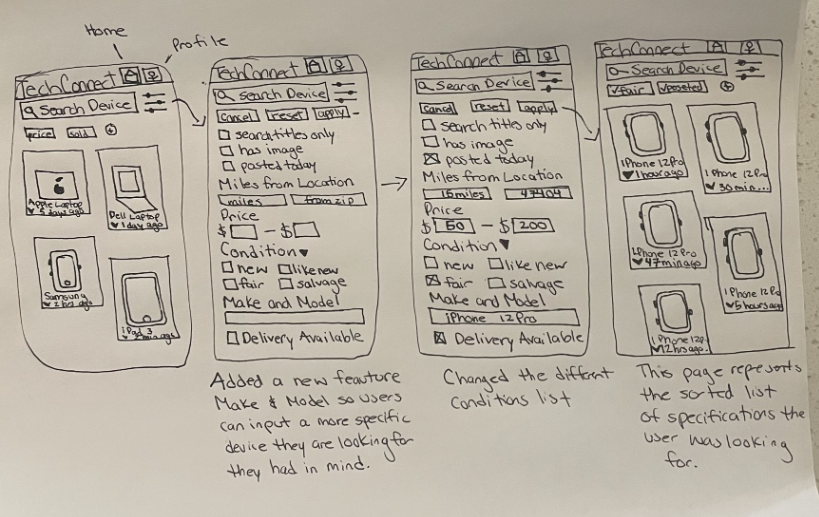 Home
Profile
TechConnect
Search Device
price sold
Apple Laptop
5 days ago
Dell Laptop
1 day ago
Samsung
2 hrs ago
iPad 3
TechConnect
Search Device
cancel reset apply
search titles only
has image
posted today
Miles from Location
miles from zip
Price
$ - $
Condition
new like new
fair salvage
Make and Model
Delivery Available
Added a new feauture
Make & Model so users
can input a more specific
device they are looking for
they had in mind.
TechConnect
Search Device
cancel reset apply
search titles only
has image
posted today
Miles from Location
15 miles 47404
Price
$ 50 - $ 200
Condition
new like new
fair salvage
Make and Model
iPhone 12 Pro
Delivery Available
Changed the different
Conditions list
TechConnect
Search Device
fair posted
iPhone 12 Pro
1 hour ago
iPhone 12 Pro
30 min...
iPhone 12 Pro
47 min ago
iPhone 12 Pro
5 hours ago
iPhone 12P
12 hrs ago.
This page represents
the sorted list
of specifications the
user was looking
for.